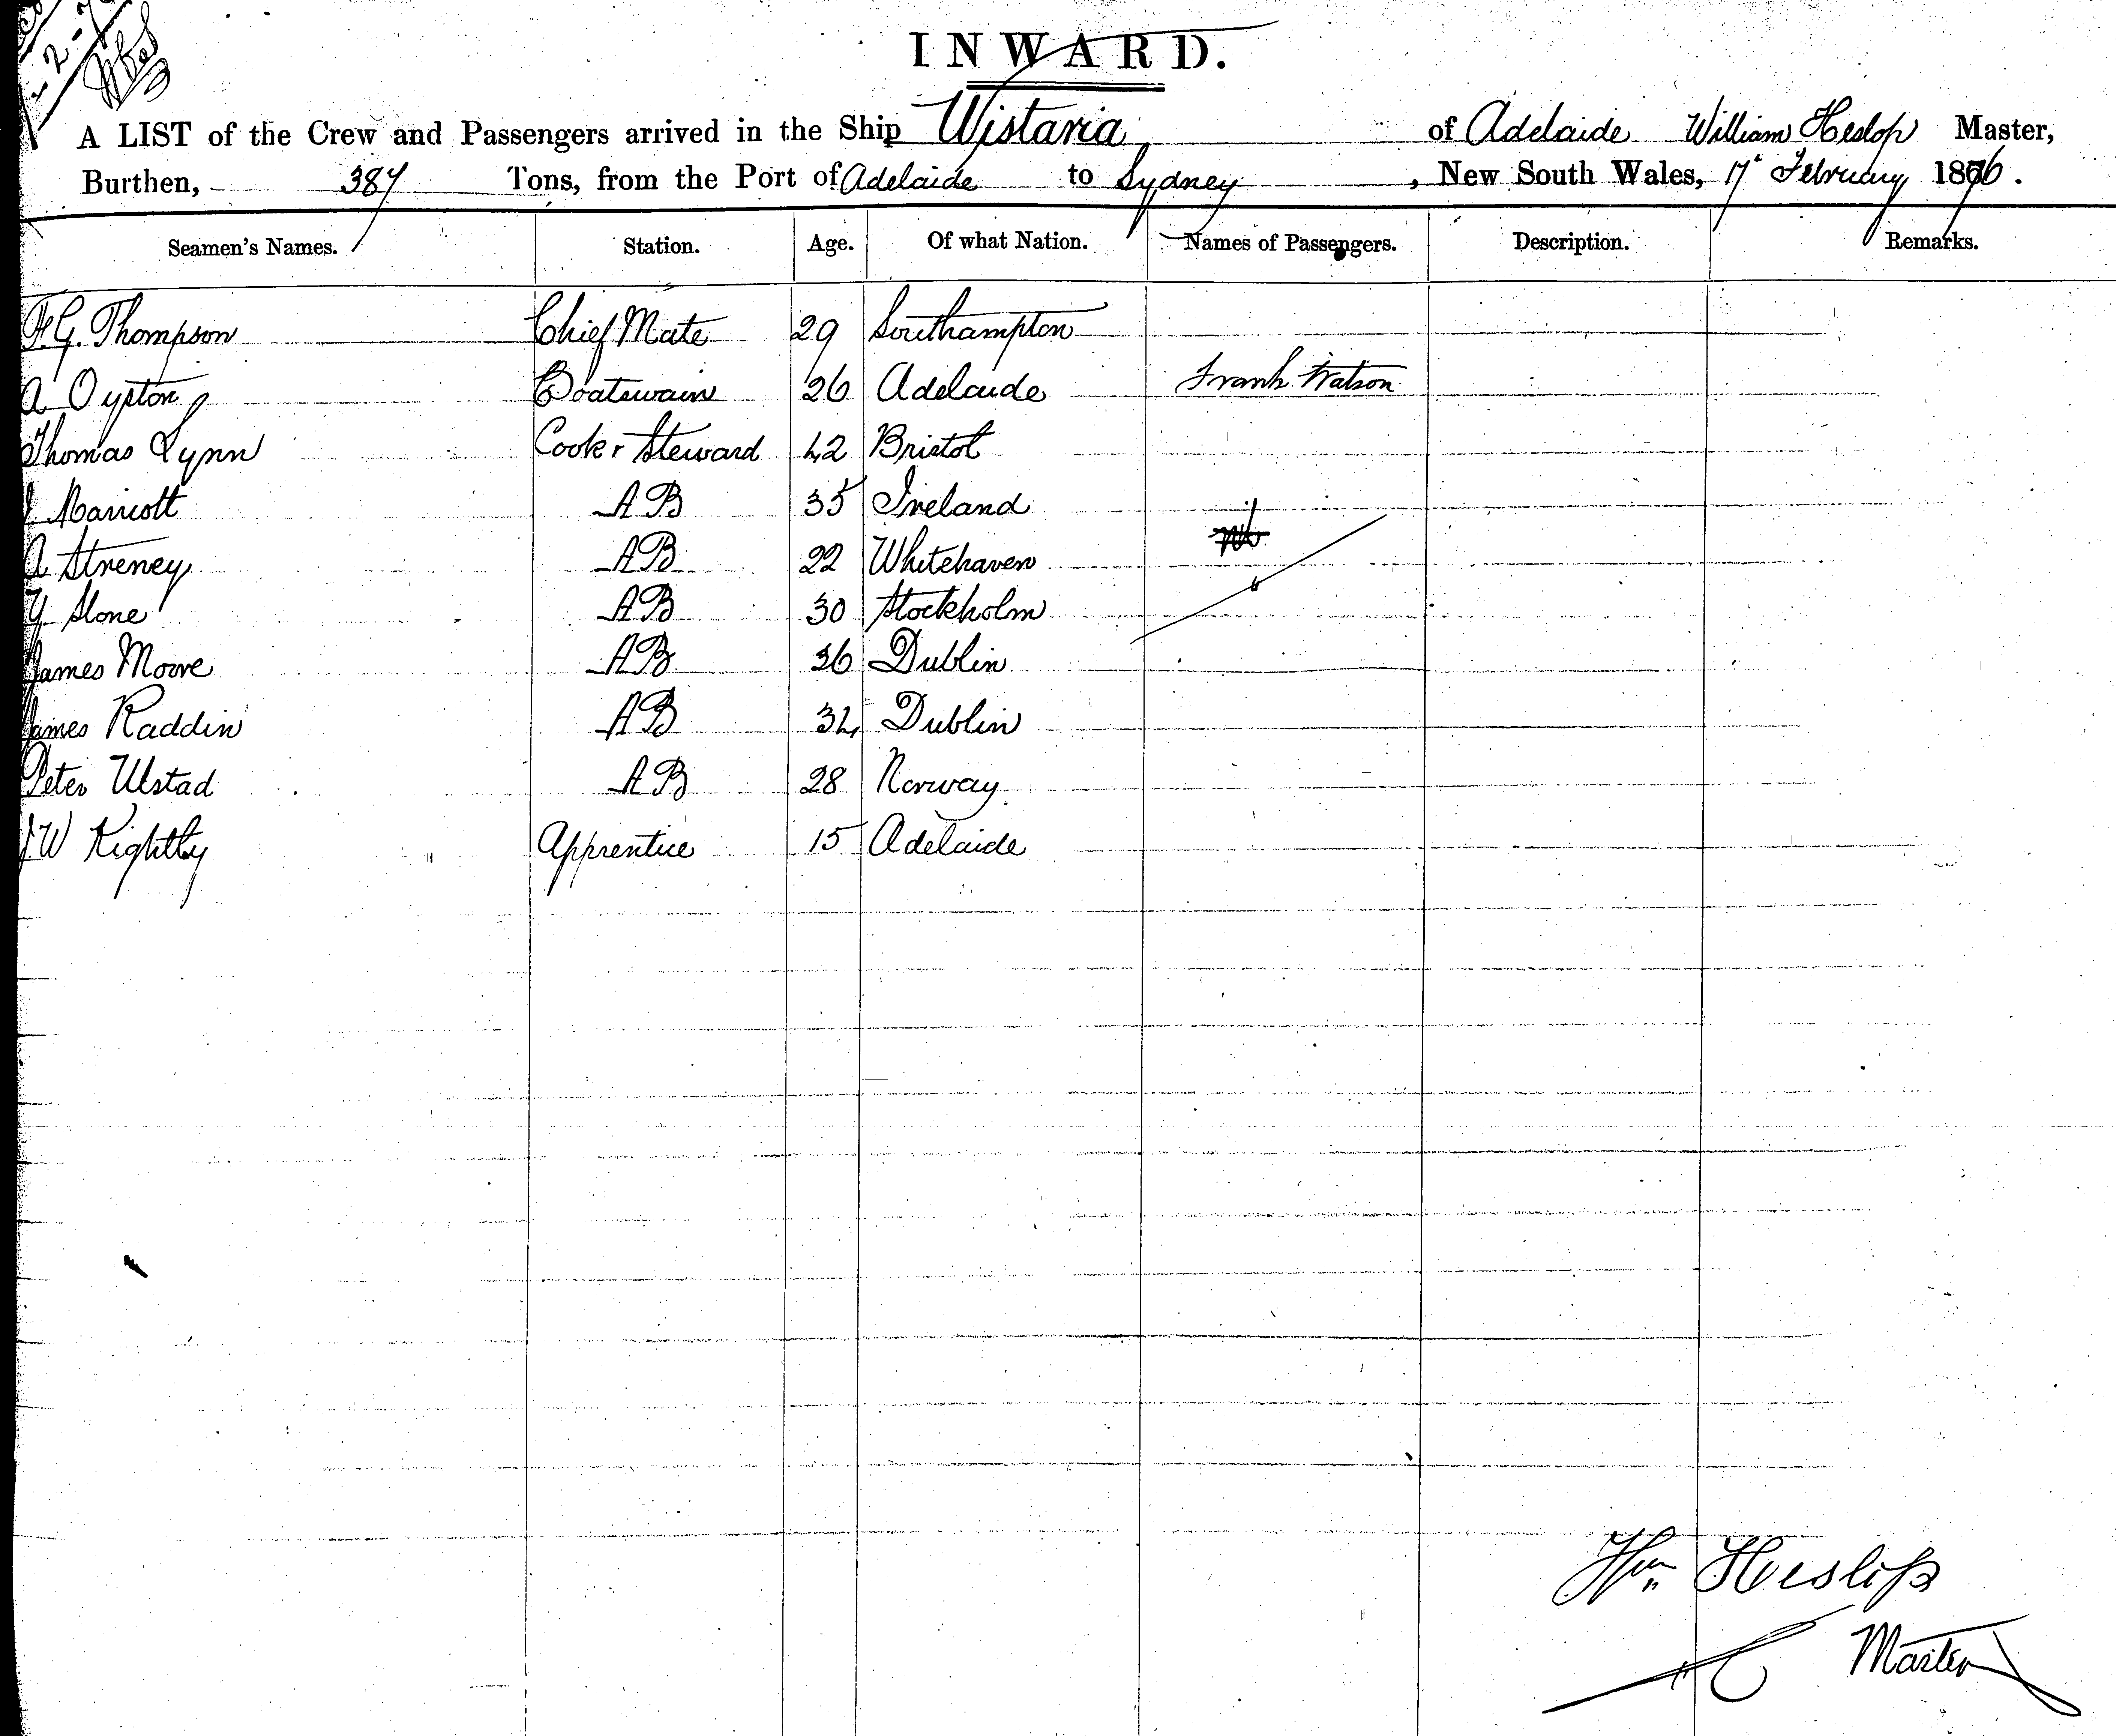 INWARD.
A LIST of the Crew and Passengers arrived in the Ship Wistaria of Adelaide William Heslop Master,
Burthen, 387 Tons, from the Port of Adelaide to Sydney, New South Wales, 17 February 1876.
Seamen's Names. Station. Age. Of what Nation. Names of Passengers. Description. Remarks.
G. Thompson Chief Mate 29 Southampton
A Oyston Boatswain 26 Adelaide Frank Watson
Thomas Lynn Cook & Steward 42 Bristol
Marriott AB 35 Ireland
A Streney AB 22 Whitehaven
Stone AB 30 Stockholm
James Moore AB 36 Dublin
James Raddin AB 34 Dublin
Peter Ulstad AB 28 Norway
J W Rightly Apprentice 15 Adelaide
Wm Heslop
Master